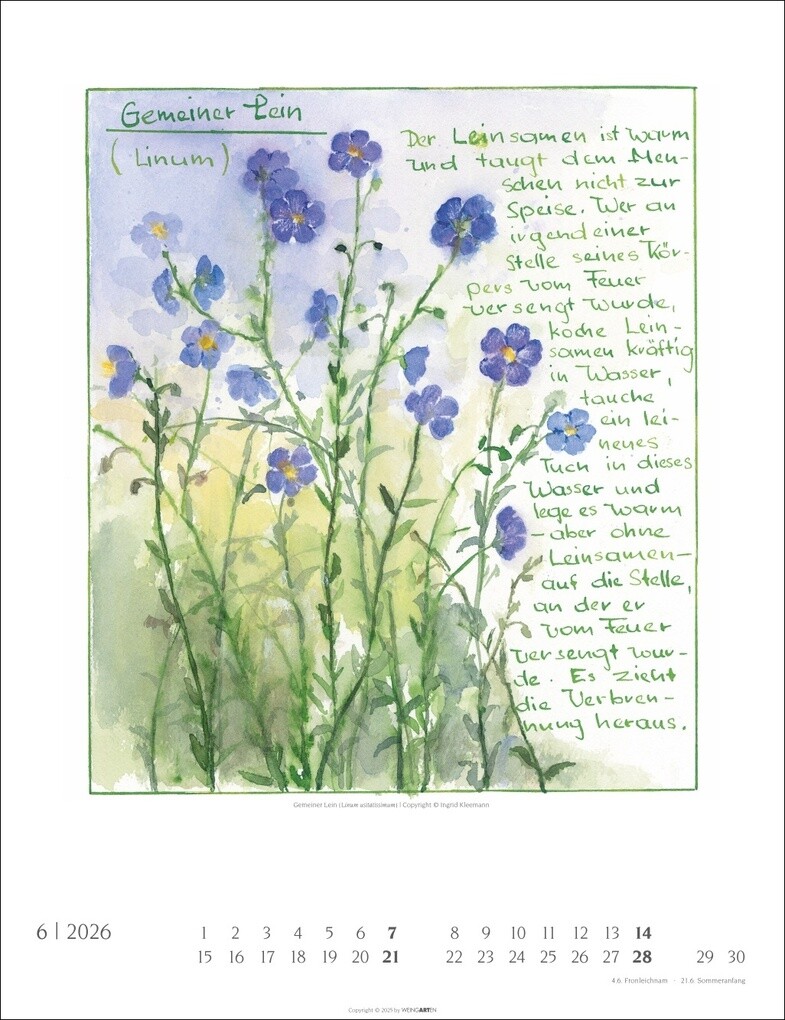 Gemeiner Lein
(Linum)
Der Leinsamen ist warm
und taugt dem Men-
schen nicht zur
Speise. Wer an
irgendeiner
Stelle seines Kör-
pers vom Feuer
versengt wurde,
koche Lein-
samen kräftig
in Wasser,
tauche
ein lei-
nenes
Tuch in dieses
Wasser und
lege es warm
- aber ohne
Leinsamen -
auf die Stelle,
an der er
vom Feuer
versengt wur-
de. Es zieht
die Verbren-
nung heraus.
Gemeiner Lein (Linum usitatissimum) | Copyright © Ingrid Kleemann
6 | 2026
1 2 3 4 5 6 7 8 9 10 11 12 13 14
15 16 17 18 19 20 21 22 23 24 25 26 27 28 29 30
4.6. Fronleichnam · 21.6. Sommeranfang
Copyright © 2025 by WEINGARTEN